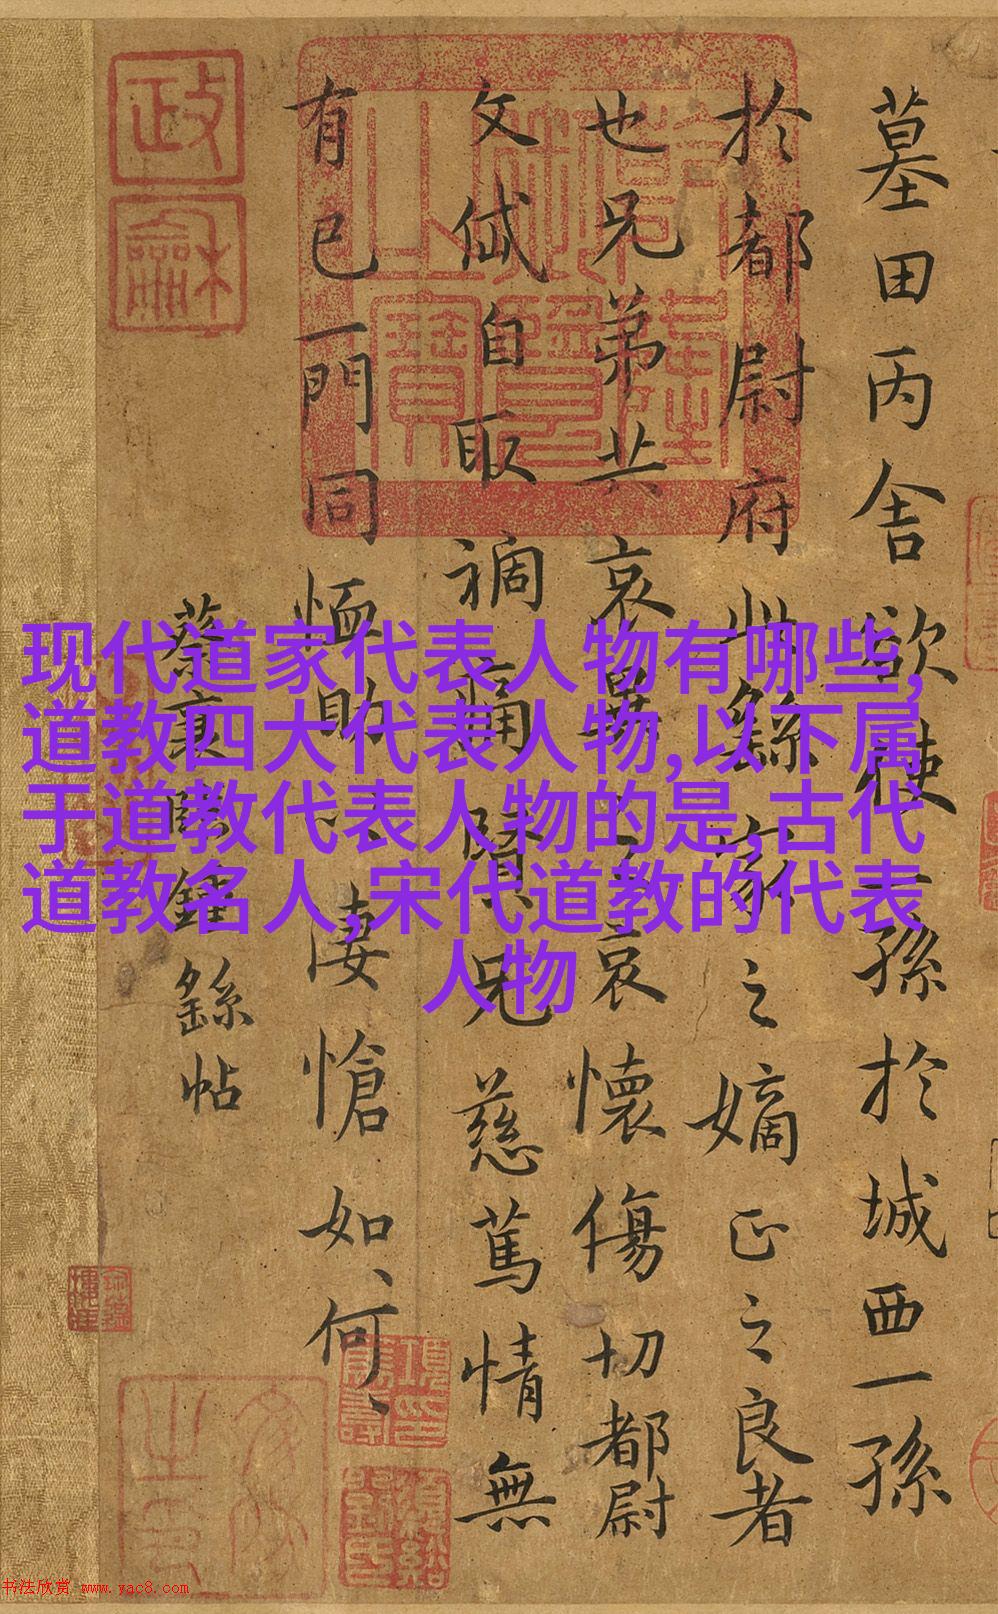 现代道家代表人物有哪些,
道教四大代表人物,以下属
于道教代表人物的是,古代
道教名人,宋代道教的代表
人物
墓田丙舍欲使一孫於城西一孫
於都尉府此繇家之嫡正之良者
也兄弟共哀異之哀懷傷切都尉
文岱自取禍痛賢兄慈篤情無
有已一門同恤助以悽愴如何
蔡襄臨鍾繇帖
政龢
书法欣赏 www.yac8.com